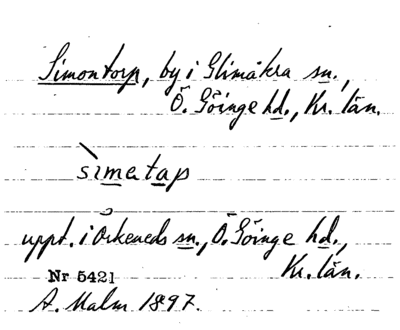 Simontorp, by i Glimåkra sn.,
Ö. Göinge hd., Kr. län.
sìmetap
uppt. i Örkeneds sn., Ö. Göinge hd.,
Kr. län.
Nr 5421
A. Malm 1897.